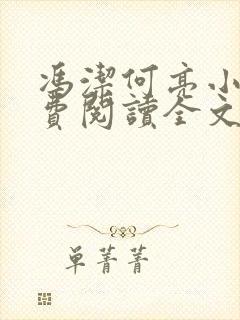 馮潔何亮小
費閱讀全文
单菁菁